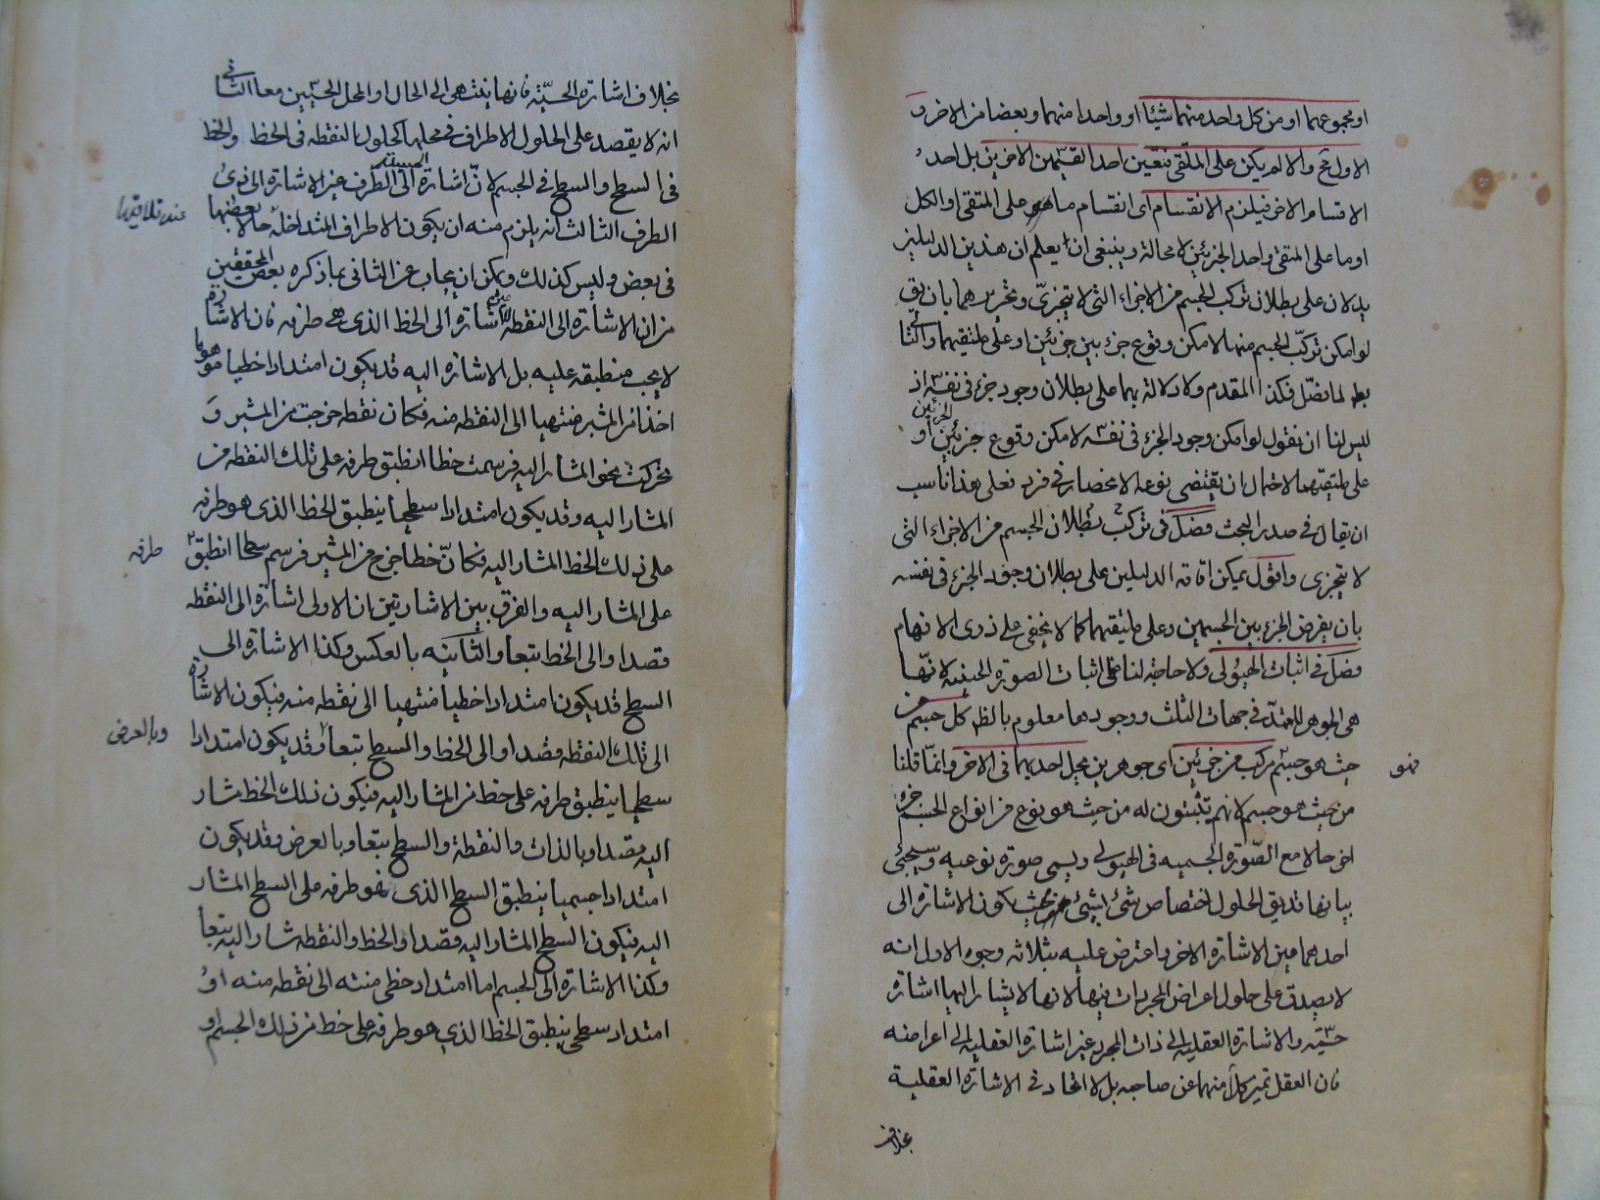 او مجموعهما او من كل واحد منهما شيئا او واحدا منهما وبعضا من الاخر و
الاول مح والا لم يكن على الملتقى فتعين احد القسمين الاخرين بل احد
الاقسام الاخر فيلزم الانقسام اى انقسام ما هو على الملتقى او الكل
او ما على الملتقى واحد الجزئين لا محالة وينبغى ان يعلم ان هذين الدليلين
يدلان على بطلان تركب الجسم من الاجزاء التى لا يتجزى وتحريرهما بان يق
لو امكن تركب الجسم منها لامكن وقوع جزء بين جزئين او على ملتقيهما والتا
بط لما فصل فكذا المقدم ولا دلالة بهما على بطلان وجود جزء فى نفسه اذ
ليس لنا ان نقول لو امكن وجود الجزء فى نفسه لامكن وقوع جزء بين الجزئين او
على ملتقيهما لاحتمال ان يقتضى نوعه الانحصار فى فرد فعلى هذا ناسب
ان يقال فى صدر البحث فصل فى بطلان تركب الجسم من الاجزاء التى
لا يتجزى واقول يمكن اقامة الدليلين على بطلان وجود الجزء فى نفسه
بان يفرض الجزء بين الجسمين وعلى ملتقيهما كما لا يخفى على ذوى الافهام
فصل فى اثبات الهيولى ولا حاجة لنا على اثبات الصورة الجسمية لانها
هى الجوهر الممتد فى جهات الثلث ووجودها معلوم بالظ كل جسم من
حيث هو جسم مركب من جزئين اى جوهرين يحل احديهما فى الاخر وانما قلنا
فهو
من حيث هو جسم لانهم يثبتون له من حيث هو نوع من انواع الجسم جزء
اخر حالا مع الصورة الجسمية فى الهيولى ويسمى صورة نوعيه وسيجئ
بيانها قد يق الحلول اختصاص شئ بشئ بحيث يكون الاشارة الى
احدهما عين الاشارة الاخر واعترض عليه بثلاثه وجوه الاول انه
لا يصدق على حلول اعراض المجردات فيها لانها لا يشار اليها اشارة
حسيّة والاشارة العقليه الى ذات المجرد غير اشارة العقليه الى اعراضه
فان العقل تميز كلا منهما عن صاحبه بل لا اتحاد فى الاشارة العقلية
بخلاف
بخلاف اشارة الحسيّة فانها ينتهى الى الحال او المحل الحسيين معا الثانى
انه لا يقصد على الحلول الاطراف فى محلها كحلول النقطه فى الخط والخط
فى السطح والسطح فى الجسم لانّ اشارة الحسية الى الطرف غير الاشارة الى ذى
الطرف الثالث انه يلزم منه ان يكون الاطراف المتداخلة حالا بعضها
عند تلاقيها
فى بعض وليس كذلك ويمكن ان يجاب عن الثانى بما ذكره بعض المحققين
من ان الاشارة الى النقطة اشارة الى الخط الذى هى طرفه فان الاشارة
لا يجب منطبقه عليه بل الاشارة اليه قد يكون امتدادا خطيا موهوما
اخذ من المشير منتهيا الى النقطه منه فكان نقطه خرجت من المشير و
تحركت نحو المشار اليه فرسمت خطا انطبق طرفه على تلك النقطه من
المشار اليه وقد يكون امتدادا سطحيا ينطبق الخط الذى هو طرفه
على ذلك الخط المشار اليه فكانّ خطا خرج من المشير فرسم سطحا انطبق
طرفه
على المشار اليه والفرق بين الاشارتين ان الاولى اشارة الى النقطه
قصدا والى الخط تبعا والثانيه بالعكس وكذا الاشارة الى
السطح قد يكون امتدادا خطيا منتهيا الى نقطه منه فيكون الاشارة
الى تلك النقطه قصدا والى الخط والسطح تبعا وقد يكون امتدادا
وبالعرض
سطحيا ينطبق طرفه على خط من المشار اليه فيكون ذلك الخط مشار
اليه قصدا وبالذات والنقطة والسطح تبعا وبالعرض وقد يكون
امتدادا جسميا ينطبق السطح الذى هو طرفه على السطح المشار
اليه فيكون السطح المشار اليه قصدا والخط والنقطه مشار اليه تبعا
وكذا الاشارة الى الجسم اما امتداد خطى منته الى نقطه منه او
امتداد سطحى ينطبق الخط الذى هو طرفه على خط من ذلك الجسم او